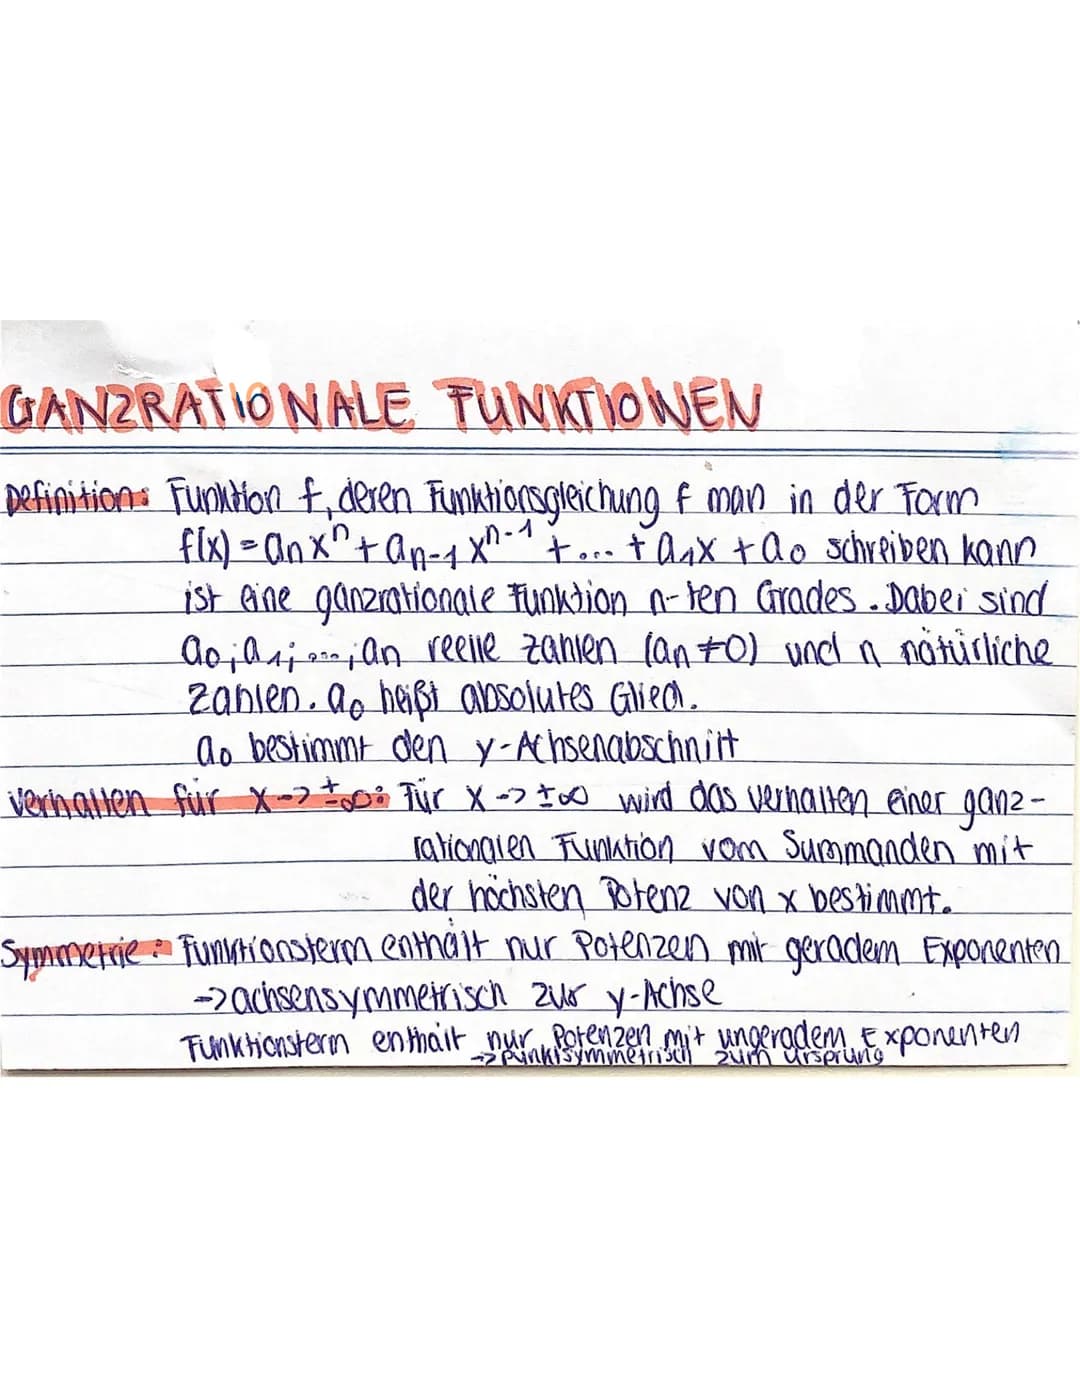 GANZRATIONALE FUNKTIONEN
Definition: Funktion f, deren Funktionsgleichung f man in der Form
f(x) = anxⁿ + an-1 xⁿ⁻¹ + ... + a1x + a0 schreiben kann
ist eine ganzrationale Funktion n-ten Grades. Dabei sind
a0; a1; ...; an reelle Zahlen (an ≠ 0) und n natürliche
Zahlen. a0 heißt absolutes Glied.
a0 bestimmt den y-Achsenabschnitt
Verhalten für x -> ±∞: Für x -> ±∞ wird das Verhalten einer ganz-
rationalen Funktion vom Summanden mit
der höchsten Potenz von x bestimmt.
Symmetrie: Funktionsterm enthält nur Potenzen mit geradem Exponenten
-> achsensymmetrisch zur y-Achse
Funktionsterm enthält nur Potenzen mit ungeradem Exponenten
-> punktsymmetrisch zum Ursprung